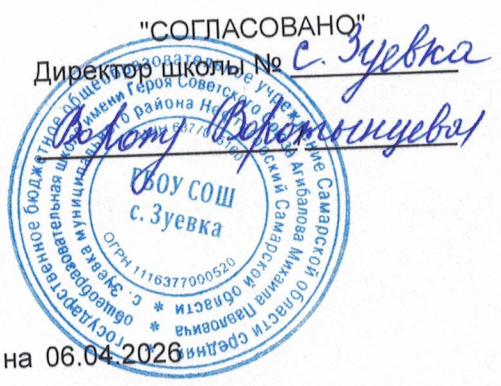 "СОГЛАСОВАНО"
Директор школы № с. Зуевка
(Воротынцева)
государственное бюджетное общеобразовательное учреждение Самарской области средняя
общеобразовательная школа имени Героя Советского Союза Агибалова Михаила Павловича
с. Зуевка муниципального района Нефтегорский Самарской области
ГБОУ СОШ
с. Зуевка
ОГРН 1116377000520
на 06.04.2026